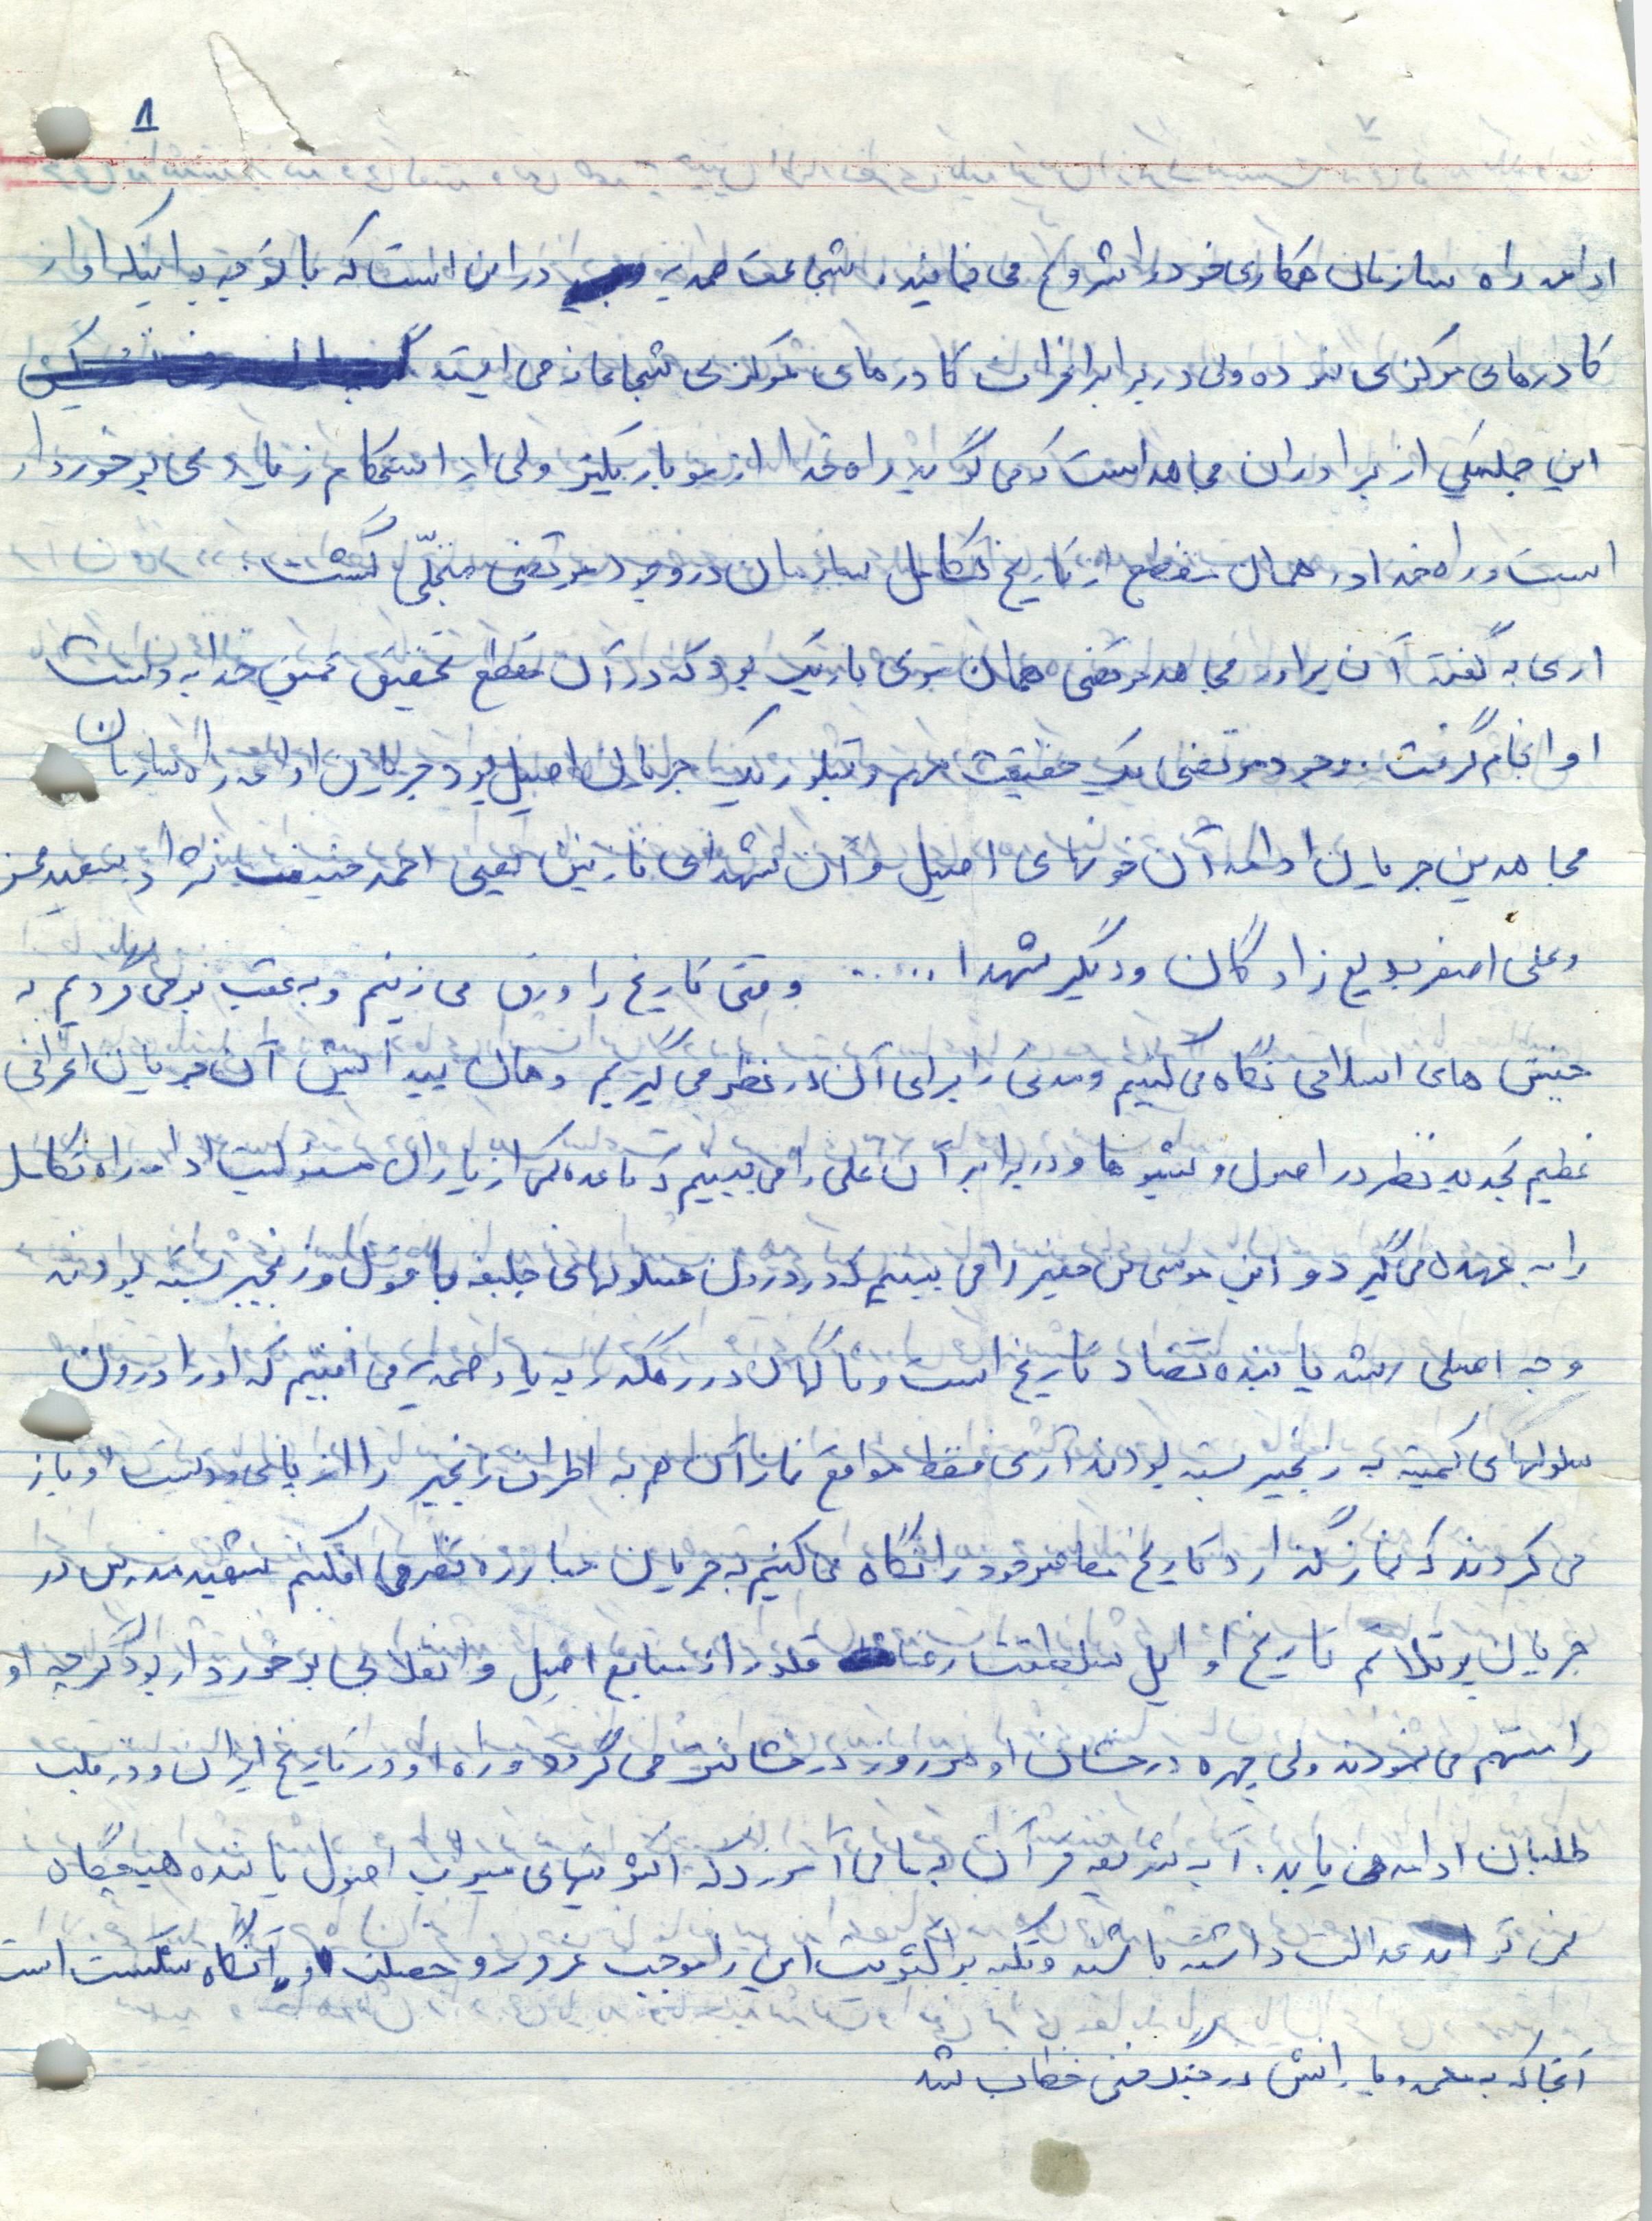 ۸
ادامه راه سازمان همکاری خود را شروع می نمایند. شجاعت صمدیه در این است که با توجه به اینکه او از
کادرهای مرکزی نبوده ولی در برابر انحراف کادرهای مرکزی شجاعانه می ایستد
این جمله یکی از برادران مجاهد است که می گوید راه خدا از مو باریکتر ولی از استحکام زیادی برخوردار
است و راه خدا در همان مقطع از تاریخ تکامل سازمان در وجود مرتضی متجلّی گشت.
اری به گفته آن برادر مجاهد مرتضی همان موی باریک بود که در آن مقطع تحقیق خدا به دست
او انجام گرفت. وجود مرتضی یک حقیقت مهم و تبلور یک جریان اصیل بود جریان ادامه راه سازمان
مجاهدین جریان ادامه آن خونهای اصیل و آن شهدای نازنین یعنی احمد حنیف نژاد سعید محسن
و علی اصغر بدیع زادگان و دیگر شهدا ..... وقتی تاریخ را ورق می زنیم و به عقب برمی گردیم به
جنبش های اسلامی نگاه می کنیم و مدتی را برای آن در نظر می گیریم و همان پیدایش آن جریان انحرافی
عظیم تجدید نظر در اصول و شیوها و در برابر آن علی را می بینیم که با عده کمی از یاران مسئولیت ادامه راه تکامل
را به عهده می گیرد و این موسی بن جعفر را می بینیم که در درون سلولهای خلیفه با غول و زنجیر بسته بودند
وجه اصلی رشد یابنده تضاد تاریخ است و ناگهان در رهگذر به یاد صمدیه می افتیم که او را درون
سلولهای کمیته به زنجیر بسته بودند آری فقط مواقع نماز آن هم به اطراف زنجیر را از پای و دست او باز
می کردند که نماز بگذارد تاریخ معاصر خود را نگاه می کنیم به جریان مبارزه نظر می افکنیم شهید مدرس در
جریان پر تلاطم تاریخ اوایل سلطنت رضا قلدر از منابع اصیل و انقلابی برخوردار بود گرچه او
را متهم می نمودند ولی چهره درخشان او هر روز درخشانتر می گردد و راه او در تاریخ ایران و در قلب
طلبان ادامه می یابد. آیه شریفه قرآن به ما می آموزد که اکثریتهای اصول یابنده هیچگاه
نمی تواند عدالت داشته باشد و تکیه بر اکثریت این را موجب غرور و آنگاه شکست است
آنجا که به محمد و یارانش در جنگ خطاب شد